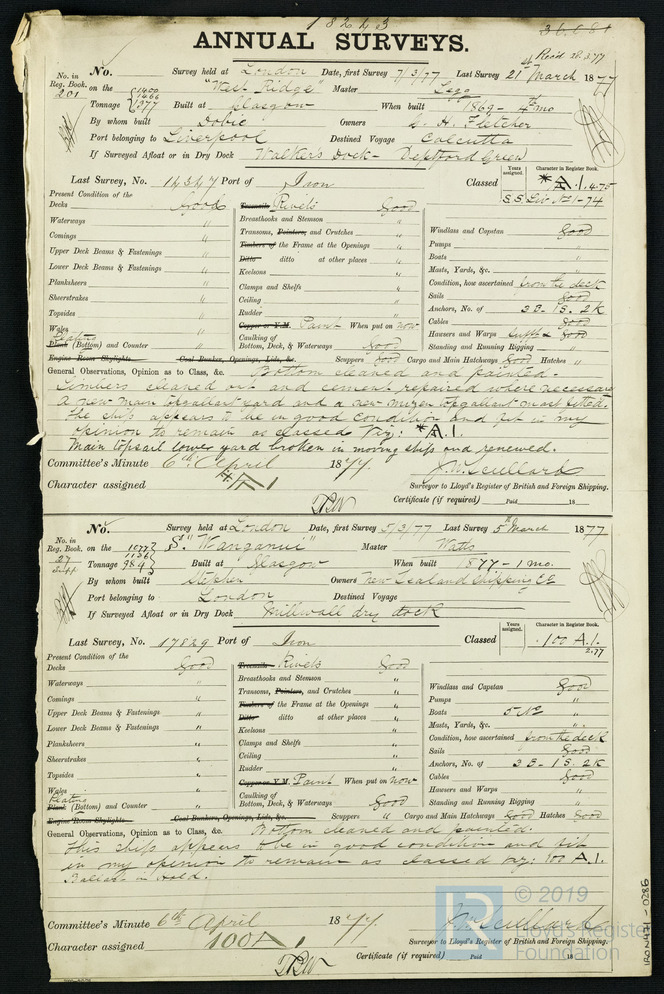 18223
36.081
ANNUAL SURVEYS.
Recd 28.3.77
No. in Reg. Book. 201
No. Survey held at London Date, first Survey 7/3/77 Last Survey 21st March 1877
on the "West Ridge" Master Legg
Tonnage 1377 Built at Glasgow When built 1869 - 4 mo
By whom built Dobie Owners Fletcher
Port belonging to Liverpool Destined Voyage Calcutta
If Surveyed Afloat or in Dry Dock Walker's Dock - Deptford Green
Years assigned. Character in Register Book.
Last Survey, No. Port of Iron Classed A.1. 4.75
S.S. Liv No 1-74
Present Condition of the
Decks Good
Waterways "
Comings "
Upper Deck Beams & Fastenings "
Lower Deck Beams & Fastenings "
Planksheers "
Sheerstrakes "
Topsides "
Wales "
Plating
Plank (Bottom) and Counter "
Engine Room Skylights Coal Bunker, Openings, Lids, &c.
Treenails Rivets Good
Breasthooks and Stemson "
Transoms, Pointers, and Crutches "
Timbers of the Frame at the Openings "
Ditto ditto at other places "
Keelsons "
Clamps and Shelfs "
Ceiling "
Rudder "
Copper or Y.M. Paint When put on now
Caulking of Bottom, Deck, & Waterways Good
Windlass and Capstan Good
Pumps "
Boats "
Masts, Yards, &c. "
Condition, how ascertained from the deck
Sails Good
Anchors, No. of 3B. 1S. 2K
Cables Good
Hawsers and Warps sufft & Good
Standing and Running Rigging "
Scuppers Good Cargo and Main Hatchways Good Hatches "
General Observations, Opinion as to Class, &c. Bottom cleaned and painted.
Limbers cleaned out and cement repaired where necessary
A new main topgallant yard and a new mizen topgallant mast fitted.
The ship appears to be in good condition and fit in my
opinion to remain as classed viz: A.1.
Main topsail lower yard broken in moving ship and renewed.
Committee's Minute 6th April 1877.
Character assigned A 1
Surveyor to Lloyd's Register of British and Foreign Shipping.
Certificate (if required) Paid 18
No. Survey held at London Date, first Survey 5/3/77 Last Survey 5th March 1877
No. in Reg. Book. 27 Supp
on the S. "Wanganui" Master Watts
1077
1136
Tonnage 984 Built at Glasgow When built 1877 - 1 mo.
By whom built Stephen Owners New Zealand Shipping Co
Port belonging to London Destined Voyage
If Surveyed Afloat or in Dry Dock Millwall dry dock
Years assigned. Character in Register Book.
Last Survey, No. 17829 Port of Iron Classed 100 A.1.
2.77
Present Condition of the
Decks Good
Waterways "
Comings "
Upper Deck Beams & Fastenings "
Lower Deck Beams & Fastenings "
Planksheers "
Sheerstrakes "
Topsides "
Wales "
Plating
Plank (Bottom) and Counter "
Engine Room Skylights Coal Bunkers, Openings, Lids, &c.
Treenails Rivets Good
Breasthooks and Stemson "
Transoms, Pointers, and Crutches "
Timbers of the Frame at the Openings "
Ditto ditto at other places "
Keelsons "
Clamps and Shelfs "
Ceiling "
Rudder "
Copper or Y.M. Paint When put on now
Caulking of Bottom, Deck, & Waterways Good
Windlass and Capstan Good
Pumps "
Boats 5 No "
Masts, Yards, &c. "
Condition, how ascertained from the deck
Sails Good
Anchors, No. of 3B. 1S. 2K
Cables Good
Hawsers and Warps "
Standing and Running Rigging "
Scuppers " Cargo and Main Hatchways Good Hatches Good
General Observations, Opinion as to Class, &c. Bottom cleaned and painted.
This ship appears to be in good condition and fit
in my opinion to remain as classed viz: 100 A.1.
Ballast in hold.
Committee's Minute 6th April 1877.
Character assigned 100A1
Surveyor to Lloyd's Register of British and Foreign Shipping.
Certificate (if required) Paid 18
© 2019
LR
Lloyd's Register
Foundation
IRON471-0286